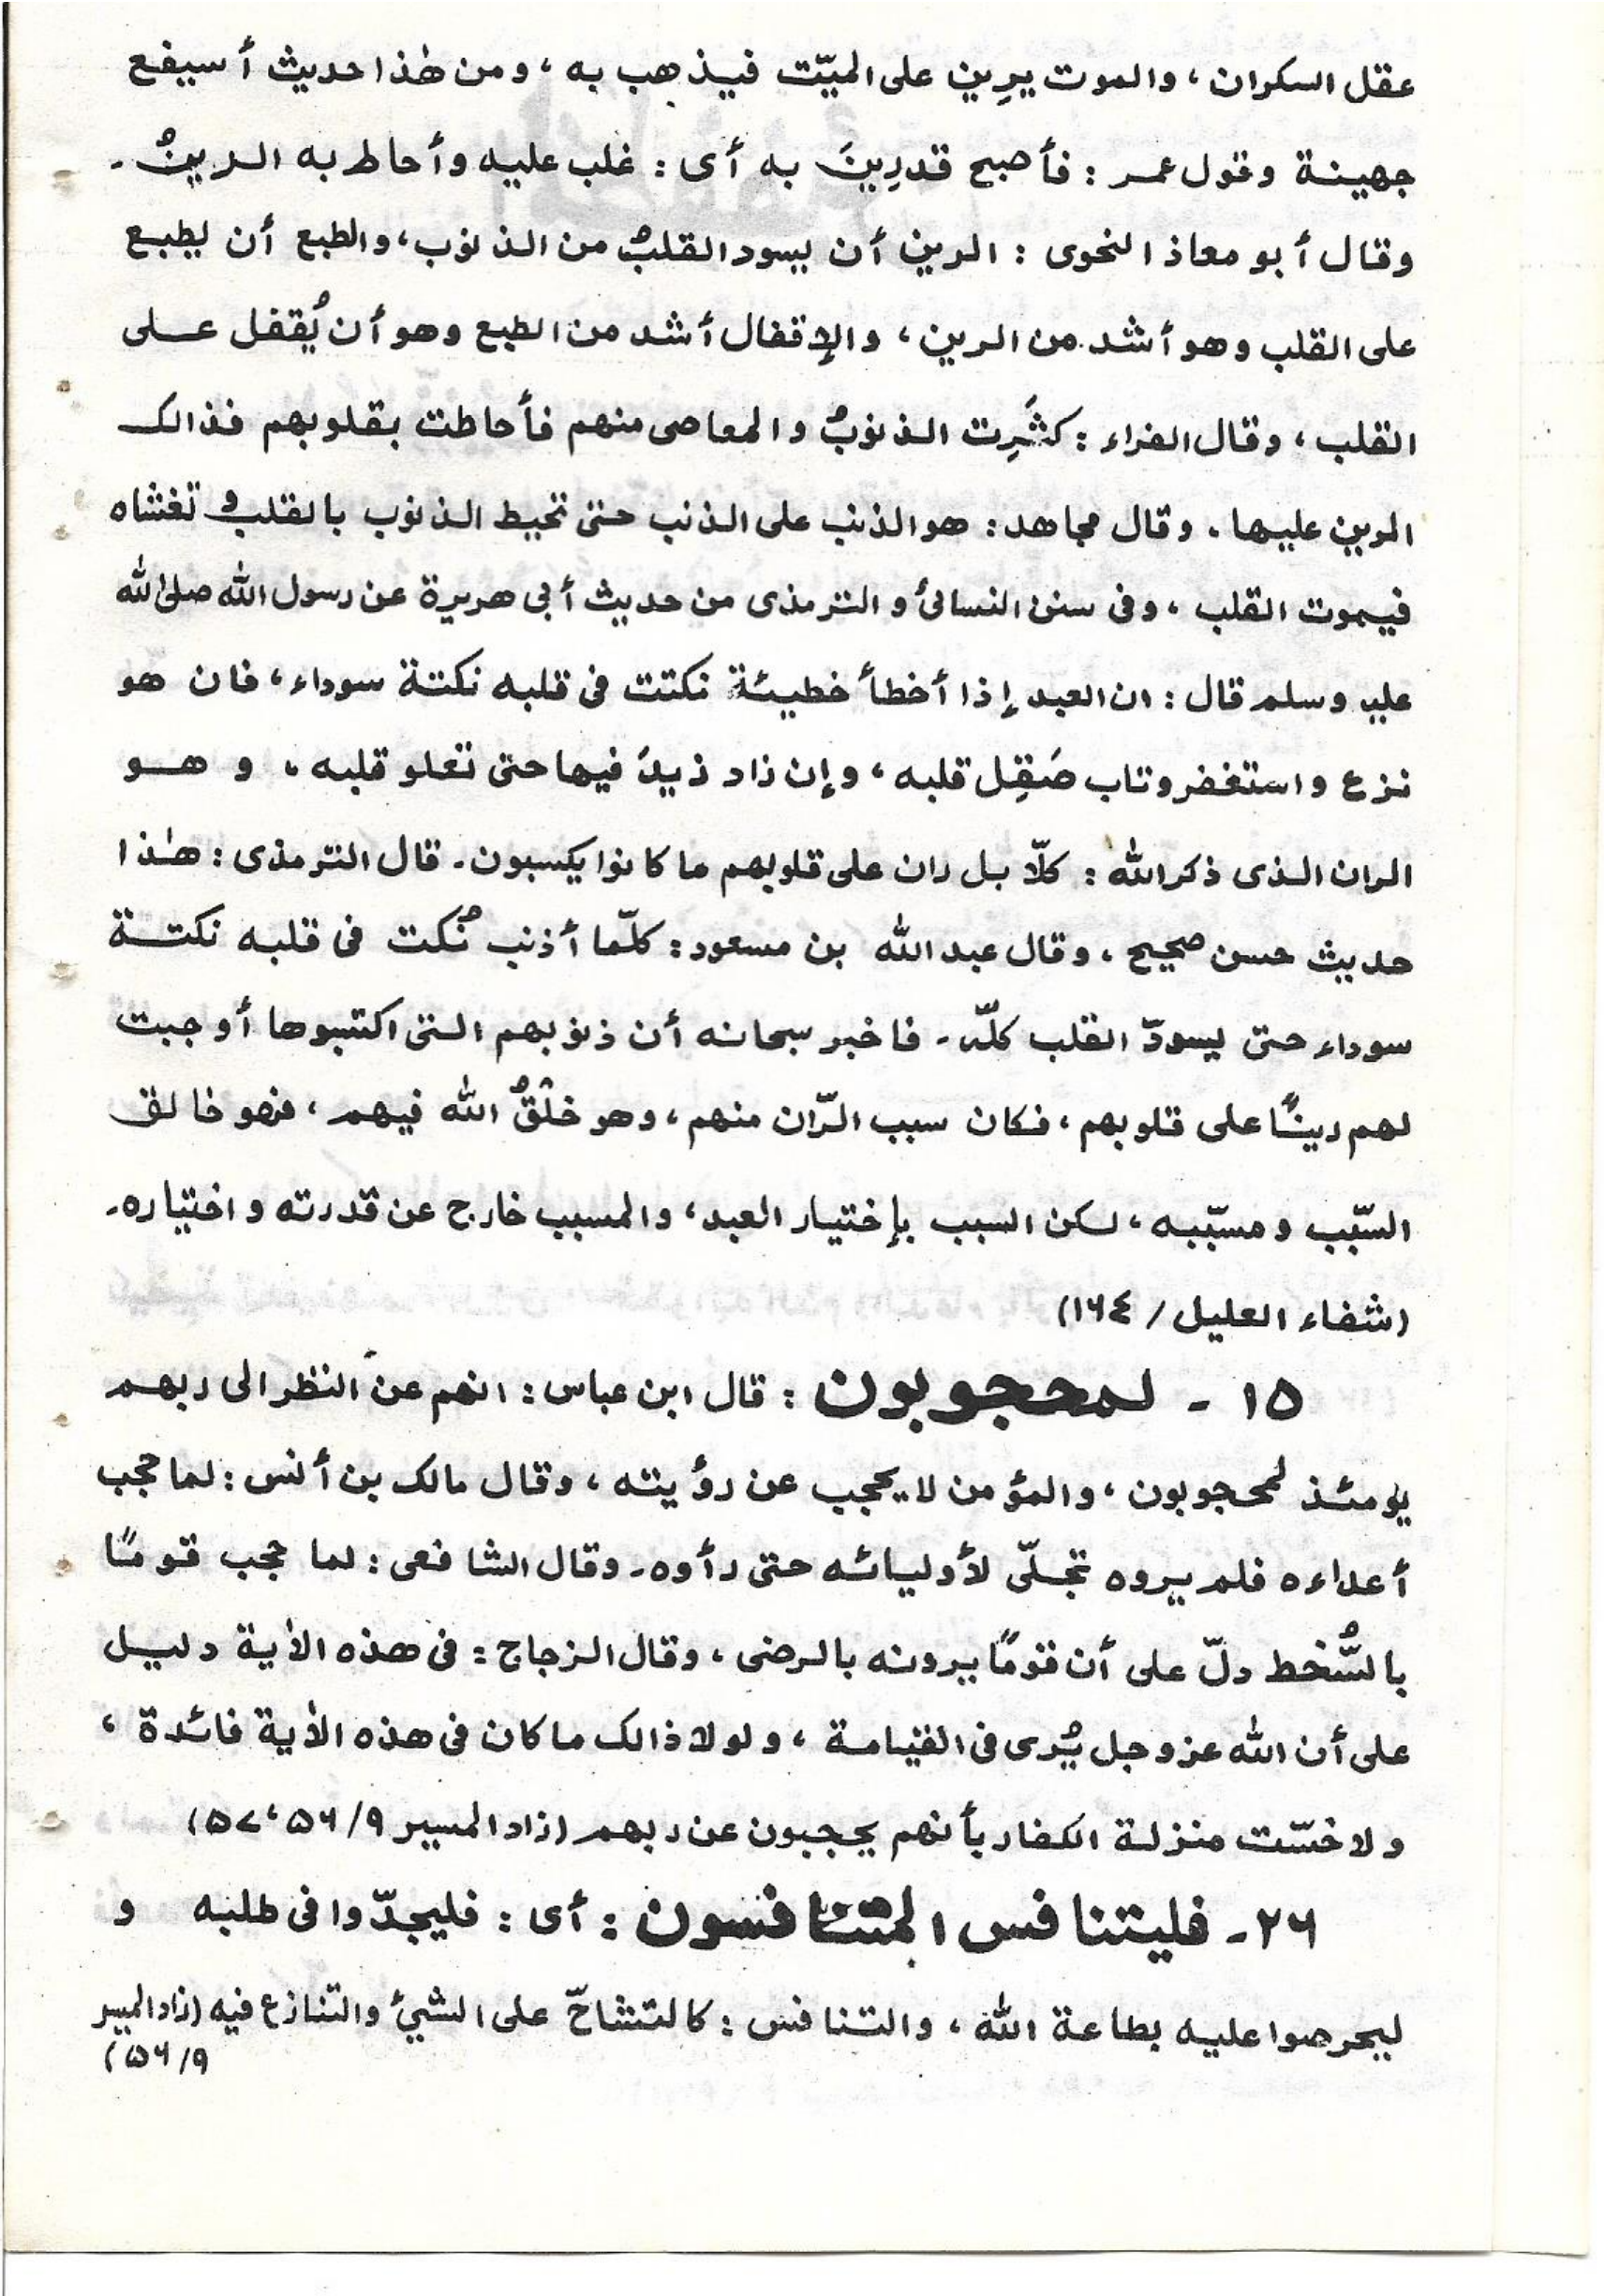 عقل السكران ، والموت يرِين على الميّت فيذهب به ، ومن هٰذا حديث أسيفع
جهينة وقول عمر : فأصبح قد رِينَ به أى : غلب عليه وأحاط به الرينُ ـ
وقال أبو معاذ النحوى : الرين أن يسود القلبُ من الذنوب ، والطبع أن يطبع
على القلب وهو أشد من الرين ، والإقفال أشد من الطبع وهو أن يُقفل على
القلب ، وقال الفراء : كثُرِت الذنوبُ والمعاصى منهم فأحاطت بقلوبهم فذالك
الرين عليها . وقال مجاهد : هو الذنب على الذنب حتى تحيط الذنوب بالقلب و تغشاه
فيموت القلب ، وفى سنن النسائى و الترمذى من حديث أبى هريرة عن رسول الله صلى الله
عليه وسلم قال : ان العبد إذا أخطأ خطيئة نكتت فى قلبه نكتة سوداء ، فان هو
نزع واستغفر وتاب صَقِل قلبه ، وإن زاد زيدَ فيها حتى تعلو قلبه ، و هو
الران الذى ذكر الله : كلّا بل ران على قلوبهم ما كانوا يكسبون ـ قال الترمذى : هٰذا
حديث حسن صحيح ، وقال عبد الله بن مسعود : كلّما أذنب نُكت فى قلبه نكتة
سوداء حتى يسودّ القلب كلّه ـ فاخبر سبحانه أن ذنوبهم التى اكتسبوها أوجبت
لهم رينًا على قلوبهم ، فكان سبب الرّان منهم ، وهو خلْقُ الله فيهم ، فهو خالق
السّبب و مسبّبه ، لكن السبب بإختيار العبد ، والمسبب خارج عن قدرته و اختياره ـ
(شفاء العليل / ١٦٤)
١٥ ـ لمحجوبون : قال ابن عباس : انهم عن النظر الى ربهم
يومئذ لمحجوبون ، والمؤمن لا يحجب عن رؤيته ، وقال مالك بن أنس : لما حجب
أعداءه فلم يروه تجلّى لأوليائه حتى رأوه ـ وقال الشافعى : لما حجب قومًا
بالسُّخط دلّ على أن قومًا يرونه بالرضى ، وقال الزجاج : فى هذه الأية دليل
على أن الله عز وجل يُرى فى القيامة ، و لولا ذالك ما كان فى هذه الأية فائدة ،
و لا خسّت منزلة الكفار بأنهم يحجبون عن ربهم (زاد المسير ٩/ ٥٦ ، ٥٧)
٢٦ ـ فليتنافس المتنافسون : أى : فليجدّوا فى طلبه و
ليحرصوا عليه بطاعة الله ، والتنافس : كالتشاحّ على الشيئ والتنازع فيه (زاد المسير
٩/ ٥٦)